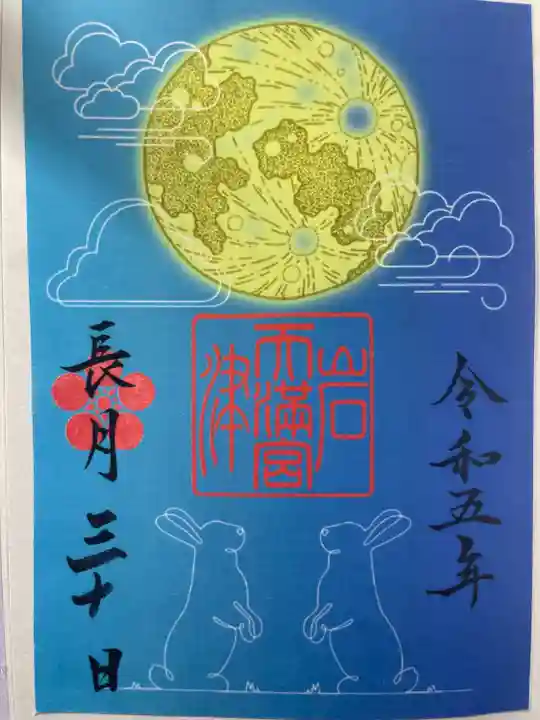 令和五年
岩
天満宮
津
長月三十日